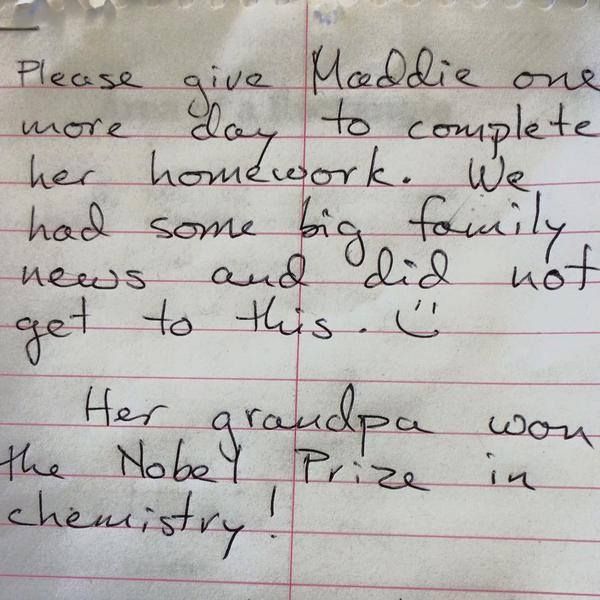 Please give Maddie one
more day to complete
her homework. We
had some big family
news and did not
get to this. :)
Her grandpa won
the Nobel Prize in
chemistry!